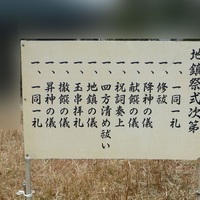 地鎮祭式次第
一、一同一礼
一、修祓
一、降神の儀
一、献饌の儀
一、祝詞奏上
一、四方清め祓い
一、地鎮の儀
一、玉串拝礼
一、撤饌の儀
一、昇神の儀
一、一同一礼